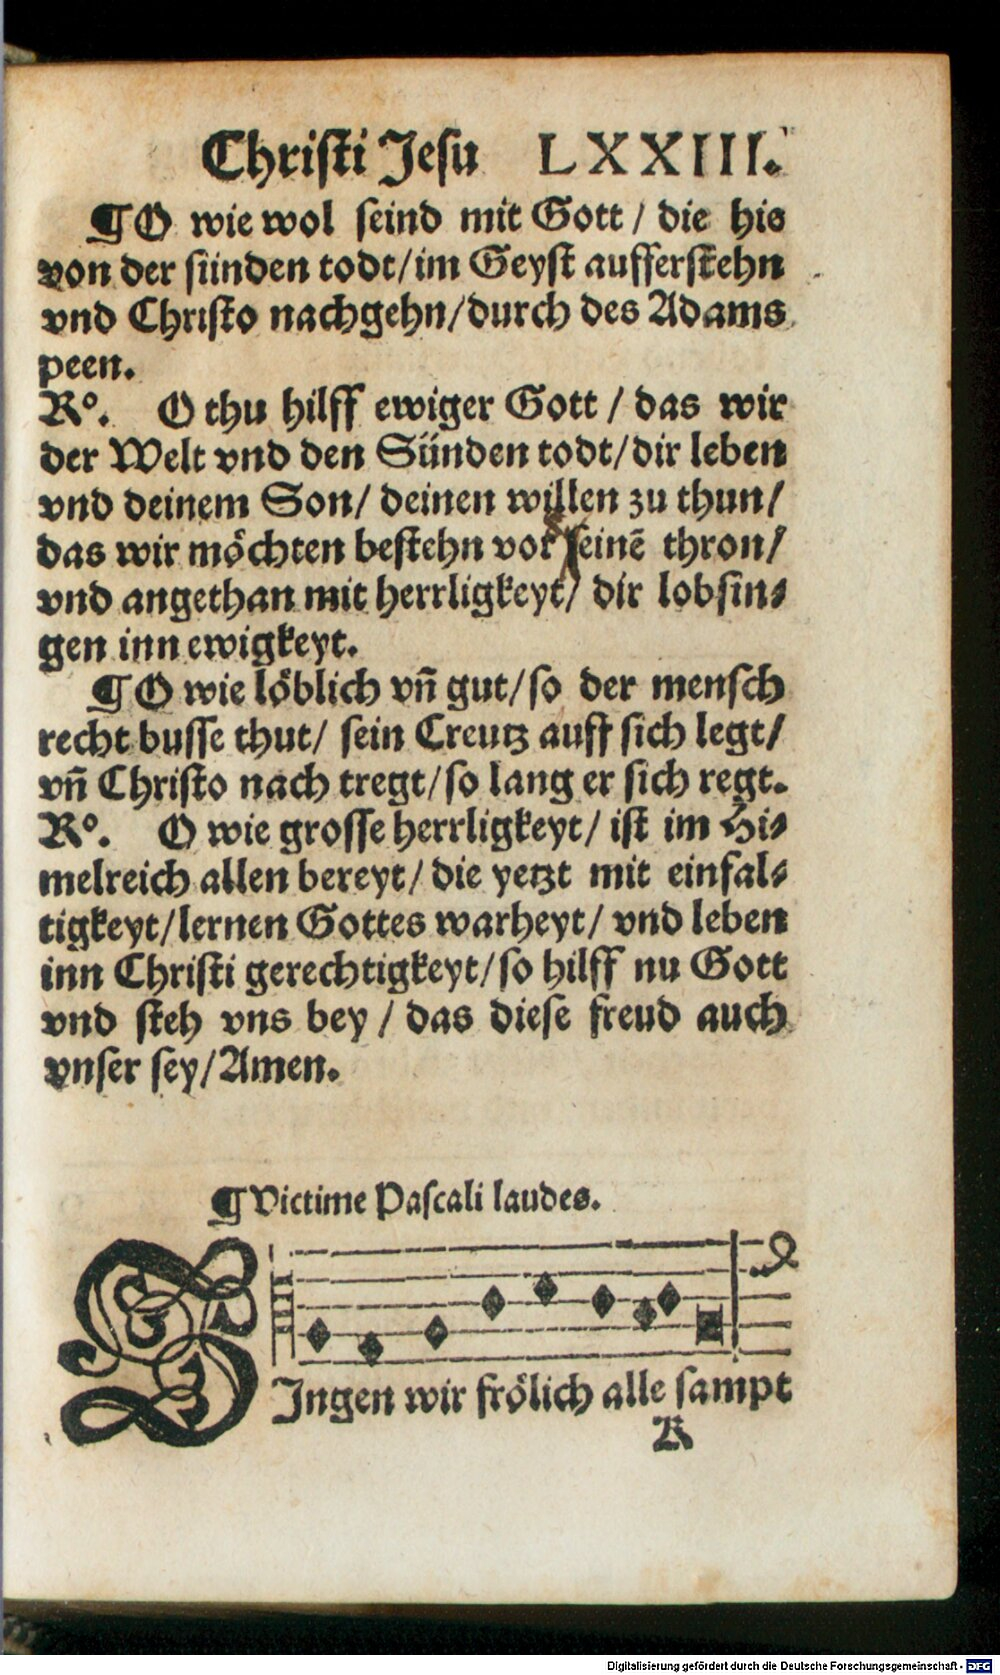 Christi Jesu LXXIII.
¶O wie wol seind mit Gott / die hie
von der sünden todt/im Geyst aufferstehn
vnd Christo nachgehn/durch des Adams
peen.
R°. O thu hilff ewiger Gott / das wir
der Welt vnd den Sünden todt/dir leben
vnd deinem Son/ deinen willen zu thun/
das wir möchten bestehn vor seinē thron/
vnd angethan mit herrligkeyt/ dir lobsin⸗
gen inn ewigkeyt.
¶O wie löblich vñ gut/so der mensch
recht busse thut/ sein Creutz auff sich legt/
vñ Christo nach tregt/so lang er sich regt.
R°. O wie grosse herrligkeyt/ ist im Hi⸗
melreich allen bereyt/ die yetzt mit einfal⸗
tigkeyt/lernen Gottes warheyt/ vnd leben
inn Christi gerechtigkeyt/so hilff nu Gott
vnd steh vns bey / das diese freud auch
vnser sey/Amen.
¶Victime Pascali laudes.
SIngen wir frölich alle sampt
K
Digitalisierung gefördert durch die Deutsche Forschungsgemeinschaft - DFG